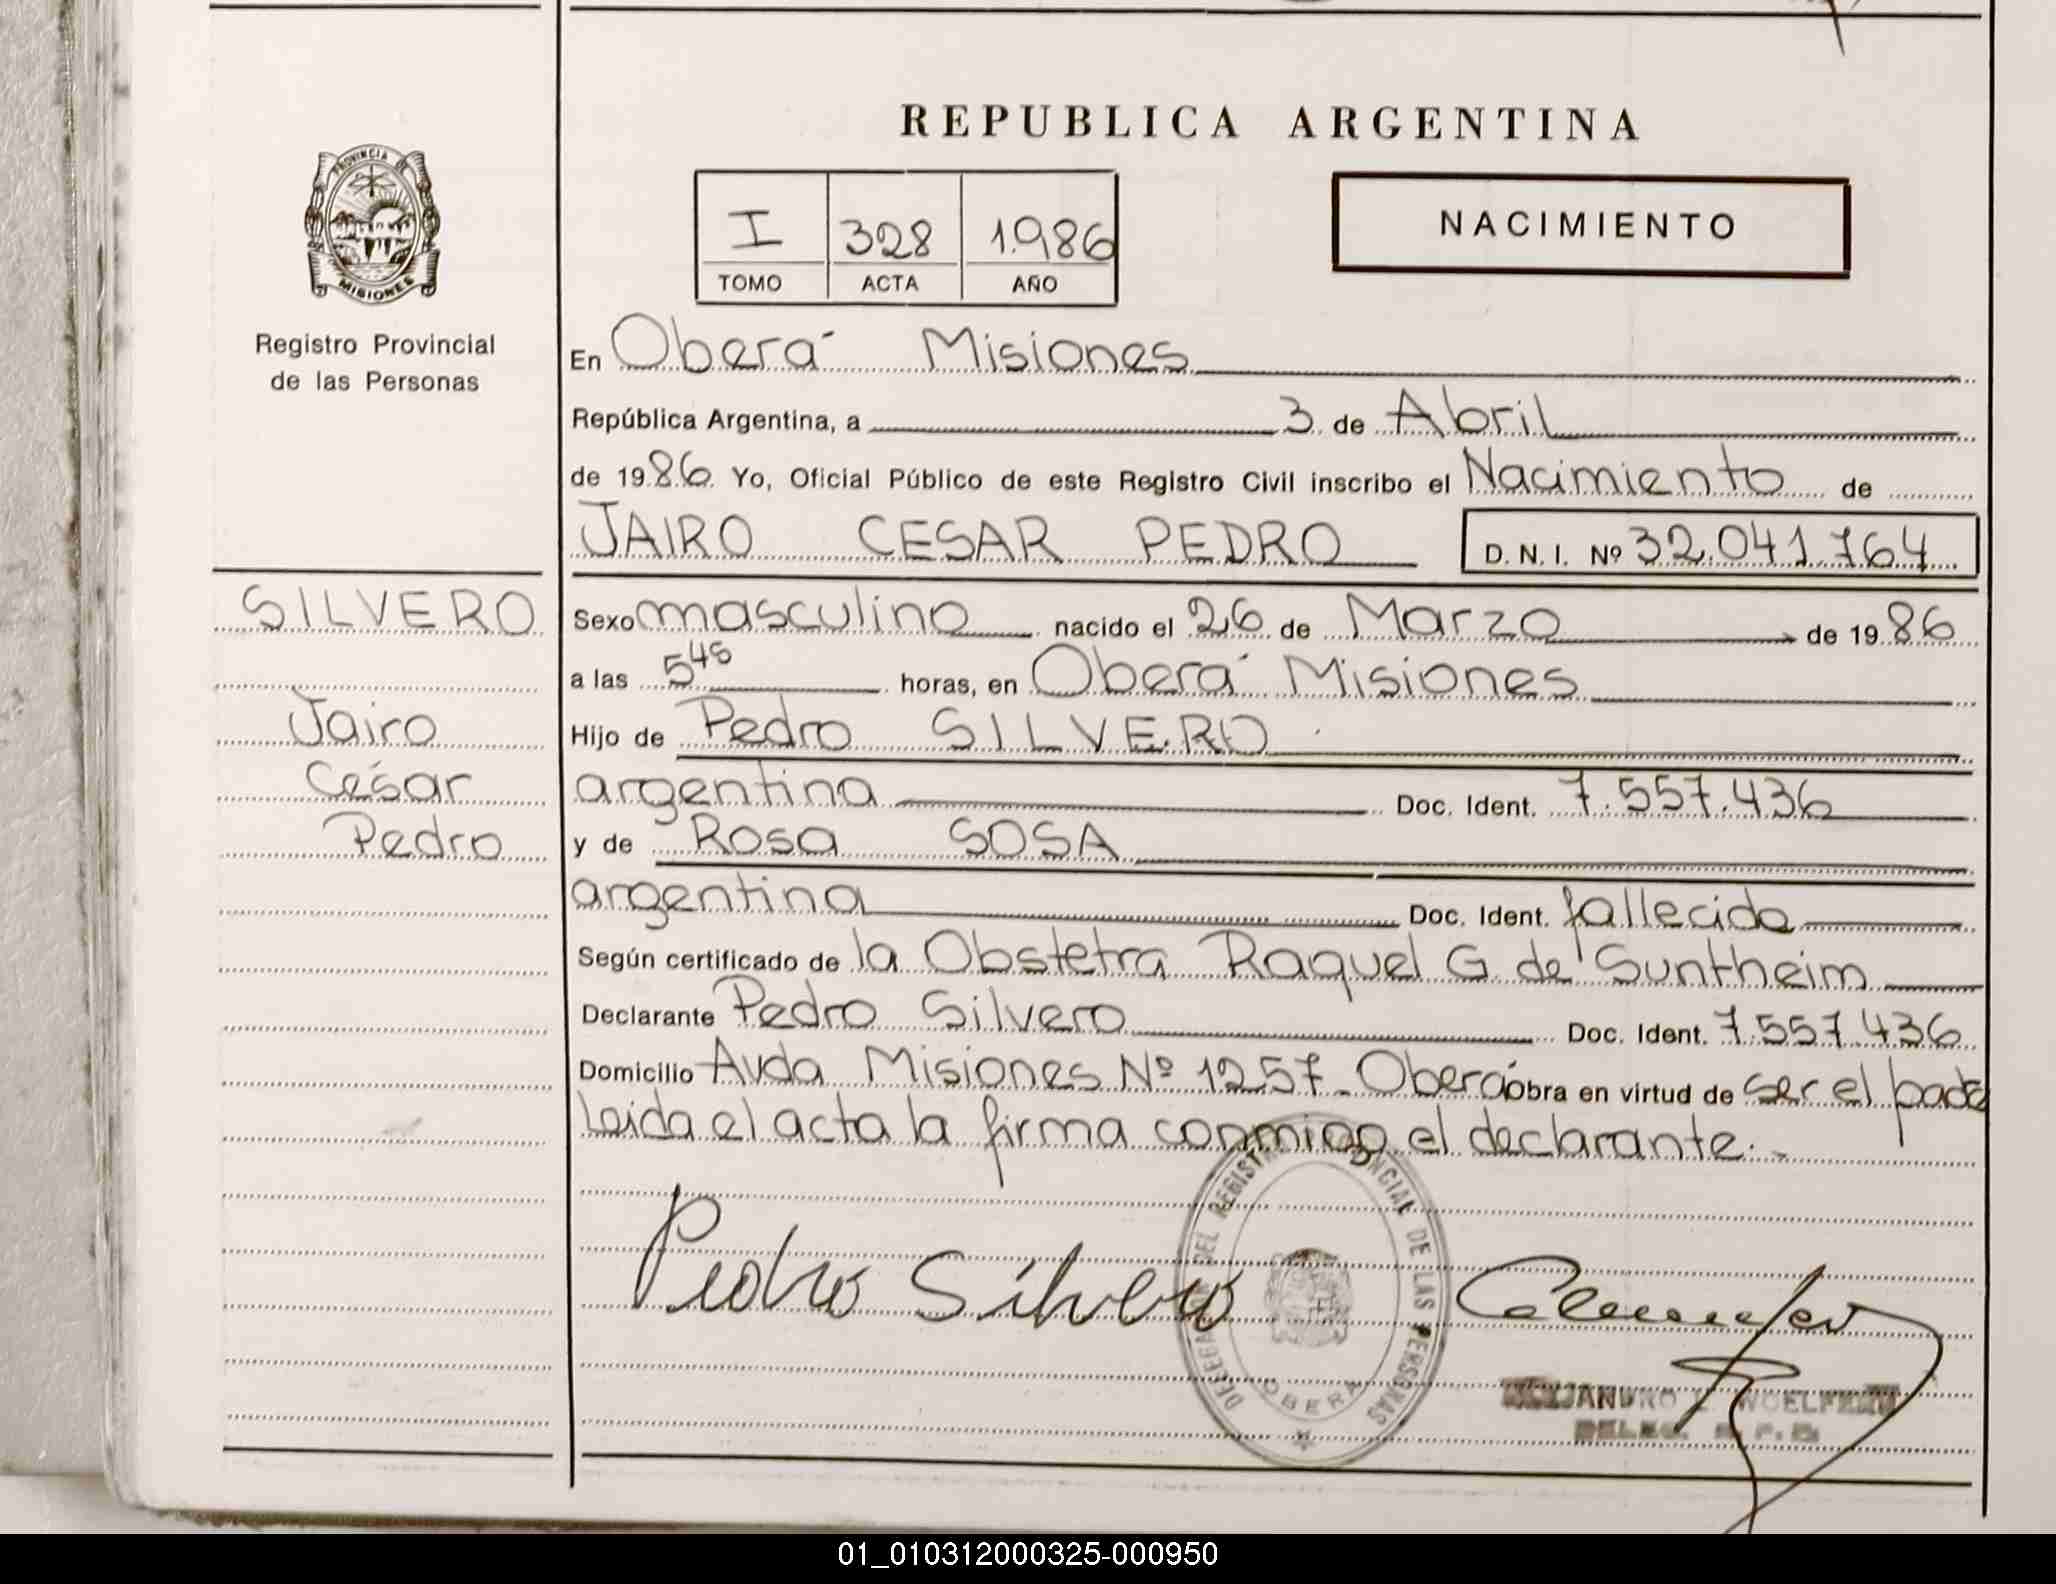 REPUBLICA ARGENTINA
PROVINCIA DE
MISIONES
I 328 1.986
TOMO ACTA AÑO
NACIMIENTO
Registro Provincial
de las Personas
En Oberá Misiones
República Argentina, a 3 de Abril
de 1986 Yo, Oficial Público de este Registro Civil inscribo el Nacimiento de
JAIRO CESAR PEDRO D. N. I. Nº 32.041.764
SILVERO
Jairo
César
Pedro
Sexo masculino nacido el 26 de Marzo de 1986
a las 5 45 horas, en Oberá Misiones
Hijo de Pedro SILVERO
argentina Doc. Ident. 7.557.436
y de Rosa SOSA
argentina Doc. Ident. fallecida
Según certificado de la Obstetra Raquel G. de Suntheim
Declarante Pedro Silvero Doc. Ident. 7.557.436
Domicilio Avda Misiones Nº 1257 - Oberá obra en virtud de ser el padre
Leida el acta la firma conmigo el declarante.-
Pedro Silvero
DEL REGISTRO PROVINCIAL DE LAS PERSONAS
OBERA
01_010312000325-000950